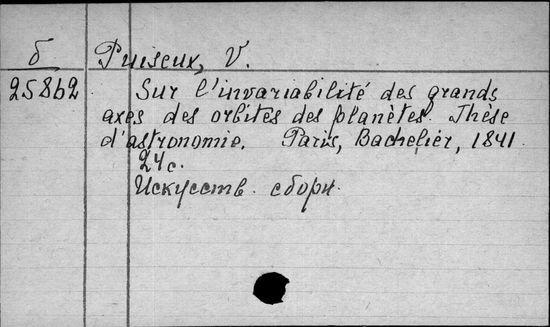 б
Puiseux, V.
25862
Sur l'invariabilité des grands
axes des orbites des planètes. Thèse
d'astronomie. Paris, Bachelier, 1841.
24 с.
Искусств. сборн.